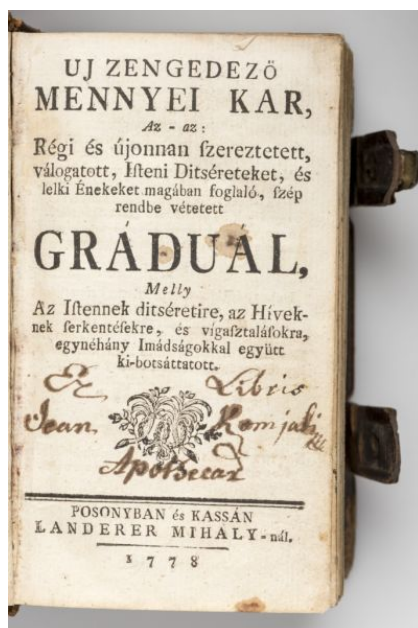 UJ ZENGEDEZŐ
MENNYEI KAR,
Az - az:
Régi és újonnan ſzereztetett,
válogatott, Iſteni Ditséreteket, és
lelki Énekeket magában foglaló, ſzép
rendbe vétetett
GRÁDUÁL,
Melly
Az Iſtennek ditséretire, az Hívek-
nek ſerkentéſekre, és vígaſztaláſokra,
egynéhány Imádságokkal együtt
ki-botsáttatott.
Ex Libris
Joan Komjati
Apothecar
POSONYBAN és KASSÁN
LANDERER MIHALY-nál.
1778